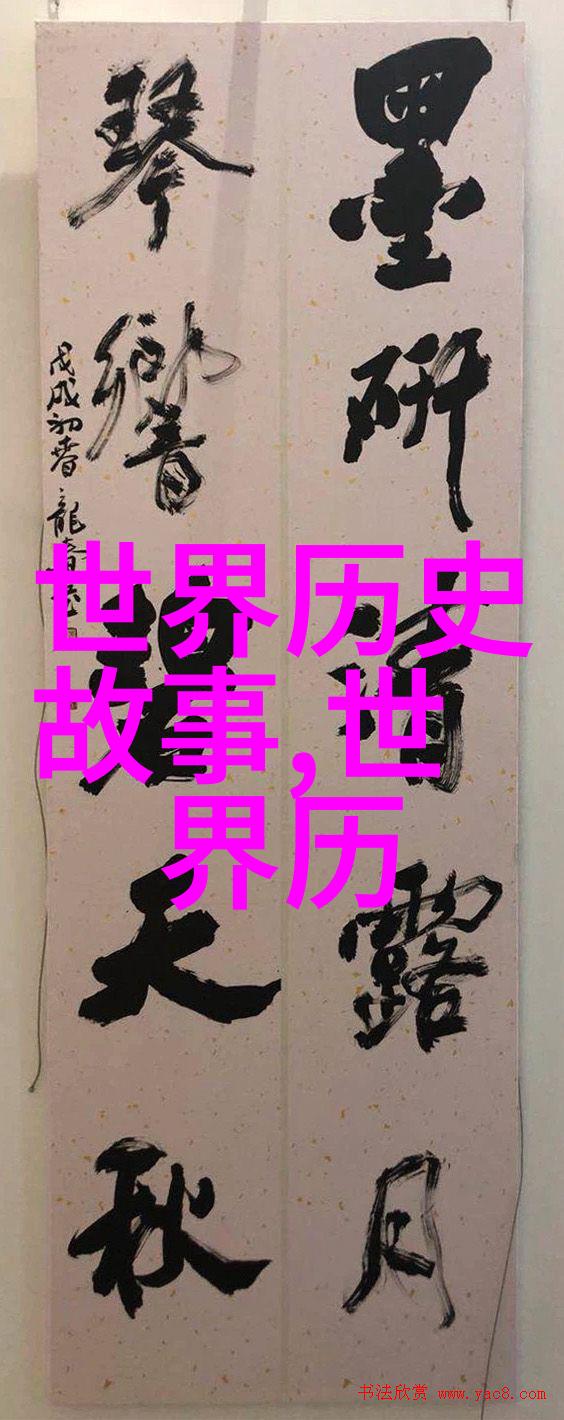 墨研清露月
琴響碧天秋
戊戌初春
龍
世界历史
故事,世
界历
书法欣赏 www.yac8.com